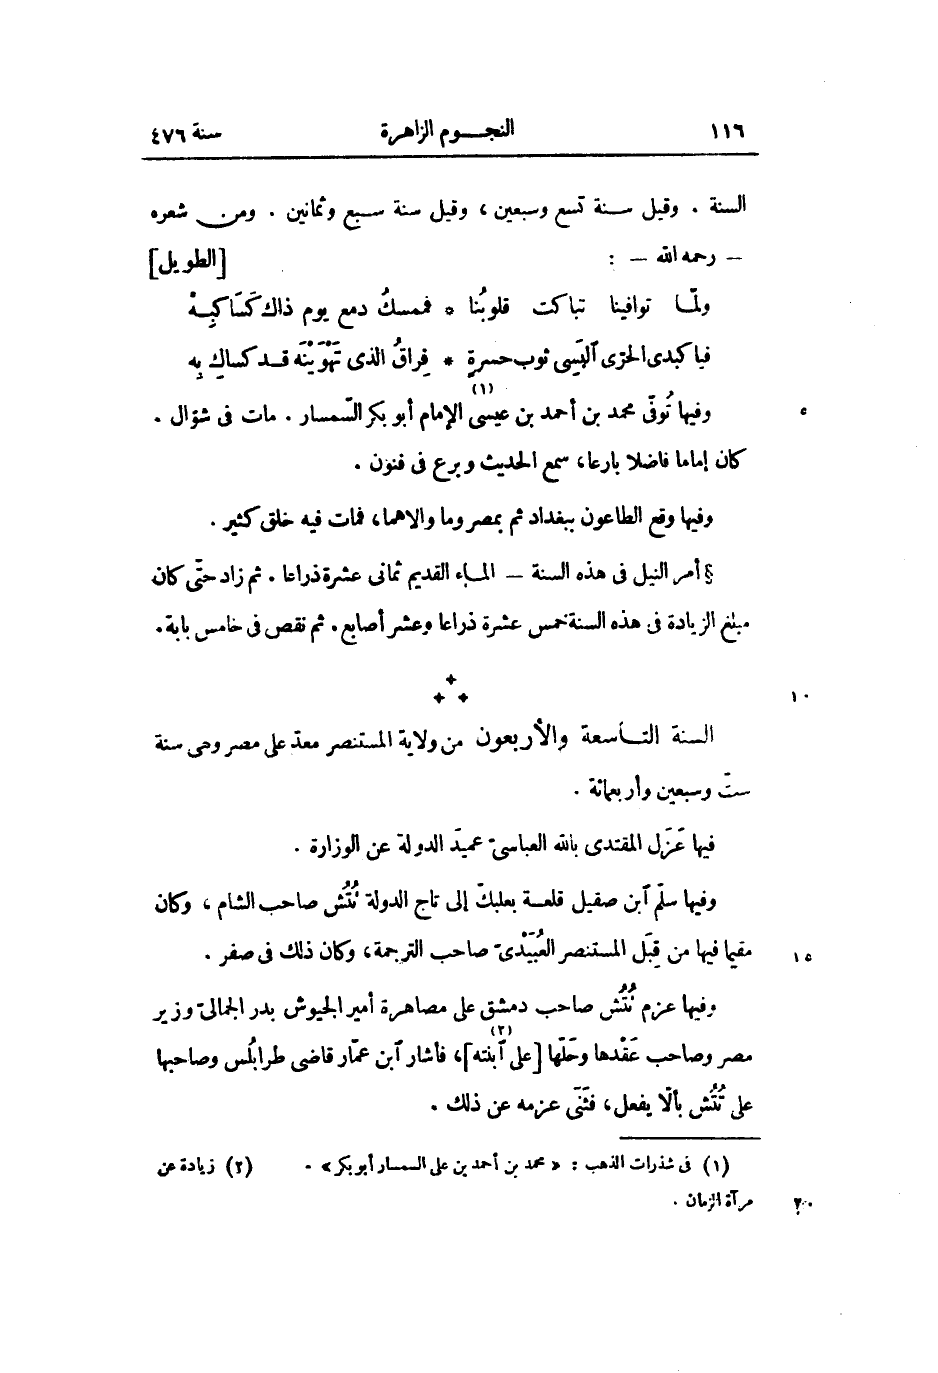 ١١٦ النجوم الزاهرة سنة ٤٧٦
السنة . وقيل سنة تسع وسبعين ، وقيل سنة سبع وثمانين . ومن شعره
— رحمه الله — : [الطويل]
ولمّا توافينا تباكت قلوبُنا * فممسكُ دمع يوم ذاك كَسَاكِبِهْ
فيا كبدى الحرّى ٱلبَسِى ثوب حسرةٍ * فِراقُ الذى تَهْوَيْنَه قد كساكِ بِه
وفيها تُوفّى محمد بن أحمد بن عيسى (١) الإمام أبو بكر السّمسار . مات فى شوّال . ٥
كان إماما فاضلا بارعا، سمع الحديث وبرع فى فنون .
وفيها وقع الطاعون ببغداد ثم بمصر وما والاهما، فمات فيه خلق كثير .
§ أمر النيل فى هذه السنة — الماء القديم ثمانى عشرة ذراعا . ثم زاد حتّى كان
مبلغ الزيادة فى هذه السنة خمس عشرة ذراعا وعشر أصابع . ثم نقص فى خامس بابة .
١٠
السنة التاسعة والأربعون من ولاية المستنصر معدّ على مصر وهى سنة
ستّ وسبعين وأربعمائة .
فيها عَزَل المقتدى بالله العباسىّ عميدَ الدولة عن الوزارة .
وفيها سلّم ٱبن صقيل قلعة بعلبكّ إلى تاج الدولة تُتُش صاحب الشام ، وكان
مقيما فيها من قِبَل المستنصر العُبَيْدىّ صاحب الترجمة، وكان ذلك فى صفر . ١٥
وفيها عزم تُتُش صاحب دمشق على مصاهرة أمير الجيوش بدر الجمالىّ وزير
مصر وصاحب عَقْدها وحَلّها [على ٱبنته] (٢)، فأشار ٱبن عمّار قاضى طرابلس وصاحبها
على تُتُش بألّا يفعل، فثَنَى عزمه عن ذلك .
(١) فى شذرات الذهب : « محمد بن أحمد بن على السمسار أبو بكر » . (٢) زيادة عن
مرآة الزمان . ٢٠